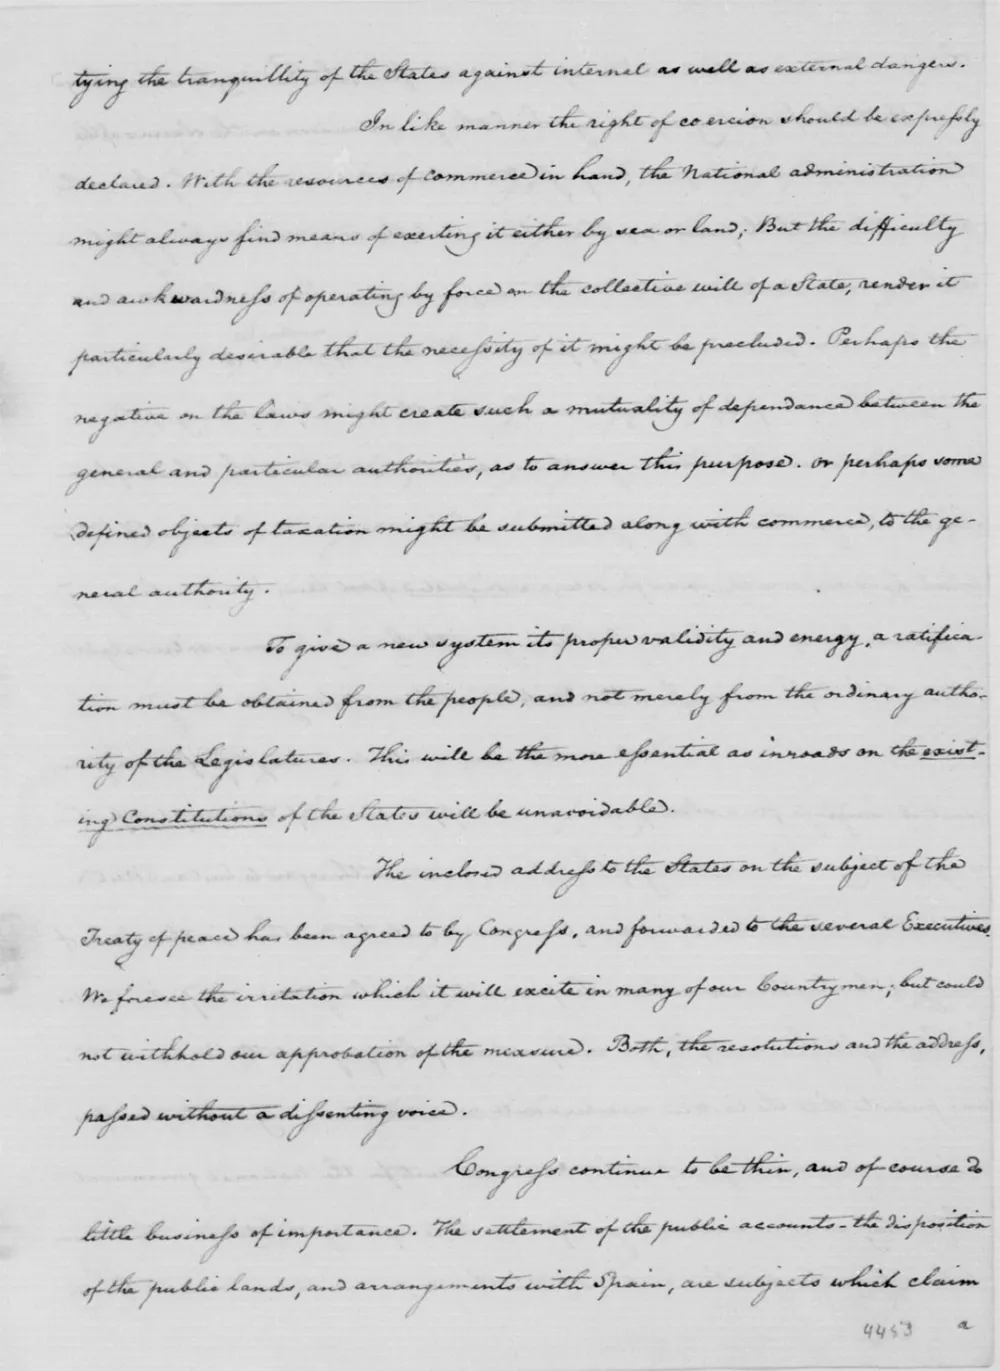 tying the tranquillity of the States against internal as well as external dangers.
In like manner the right of coercion should be expressly
declared. With the resources of commerce in hand, the National administration
might always find means of exerting it either by sea or land; But the difficulty
and awkwardness of operating by force on the collective will of a State, render it
particularly desirable that the necessity of it might be precluded. Perhaps the
negative on the laws might create such a mutuality of dependance between the
general and particular authorities, as to answer this purpose. or perhaps some
defined objects of taxation might be submitted along with commerce, to the ge-
neral authority.
To give a new system its proper validity and energy, a ratifica-
tion must be obtained from the people, and not merely from the ordinary autho-
rity of the Legislatures. This will be the more essential as inroads on the exist-
ing Constitutions of the States will be unavoidable.
The inclosed address to the States on the subject of the
Treaty of peace has been agreed to by Congress, and forwarded to the several Executives.
We foresee the irritation which it will excite in many of our Countrymen; but could
not withhold our approbation of the measure. Both, the resolutions and the address,
passed without a dissenting voice.
Congress continue to be thin, and of course do
little business of importance. The settlement of the public accounts - the disposition
of the public lands, and arrangements with Spain, are subjects which claim
4453 a